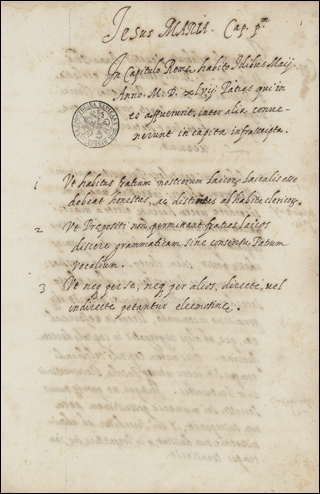 Jesus MARIA. Cap. p.
In Capitulo Romæ habito Idibus Maij.
Anno. M. D. xlvij Patres qui in
eo affuerunt, inter alia conve-
nerunt in capita infrascripta.
1 Ut habitus fratrum nostrorum laicor laicalis esse
debeat honestus, ac distinctus ab habitu clericor.
2 Ut Prepositi non permittant fratres laicos
discere grammaticam sine consensu Patrum
vocalium.
3 Ut neq per se, neq per alios, directe, vel
indirecte petantur eleemosine.